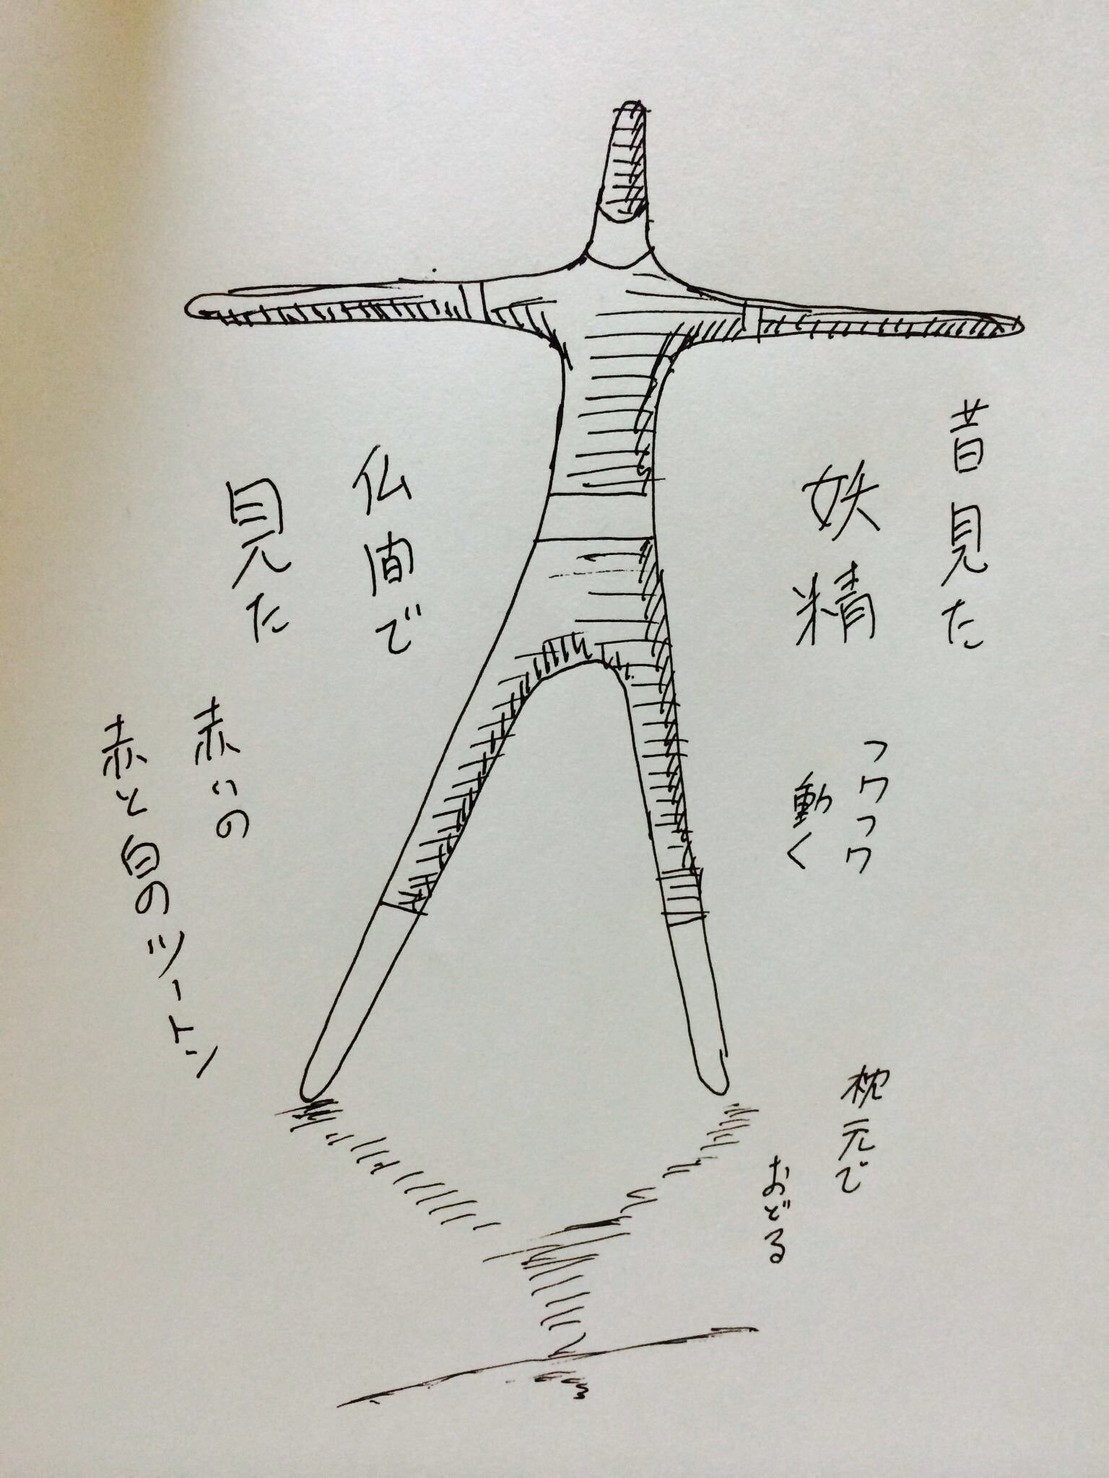 昔見た
妖精
フワフワ
動く
枕元で
おどる
仏間で
見た
赤いの
赤と白のツートン